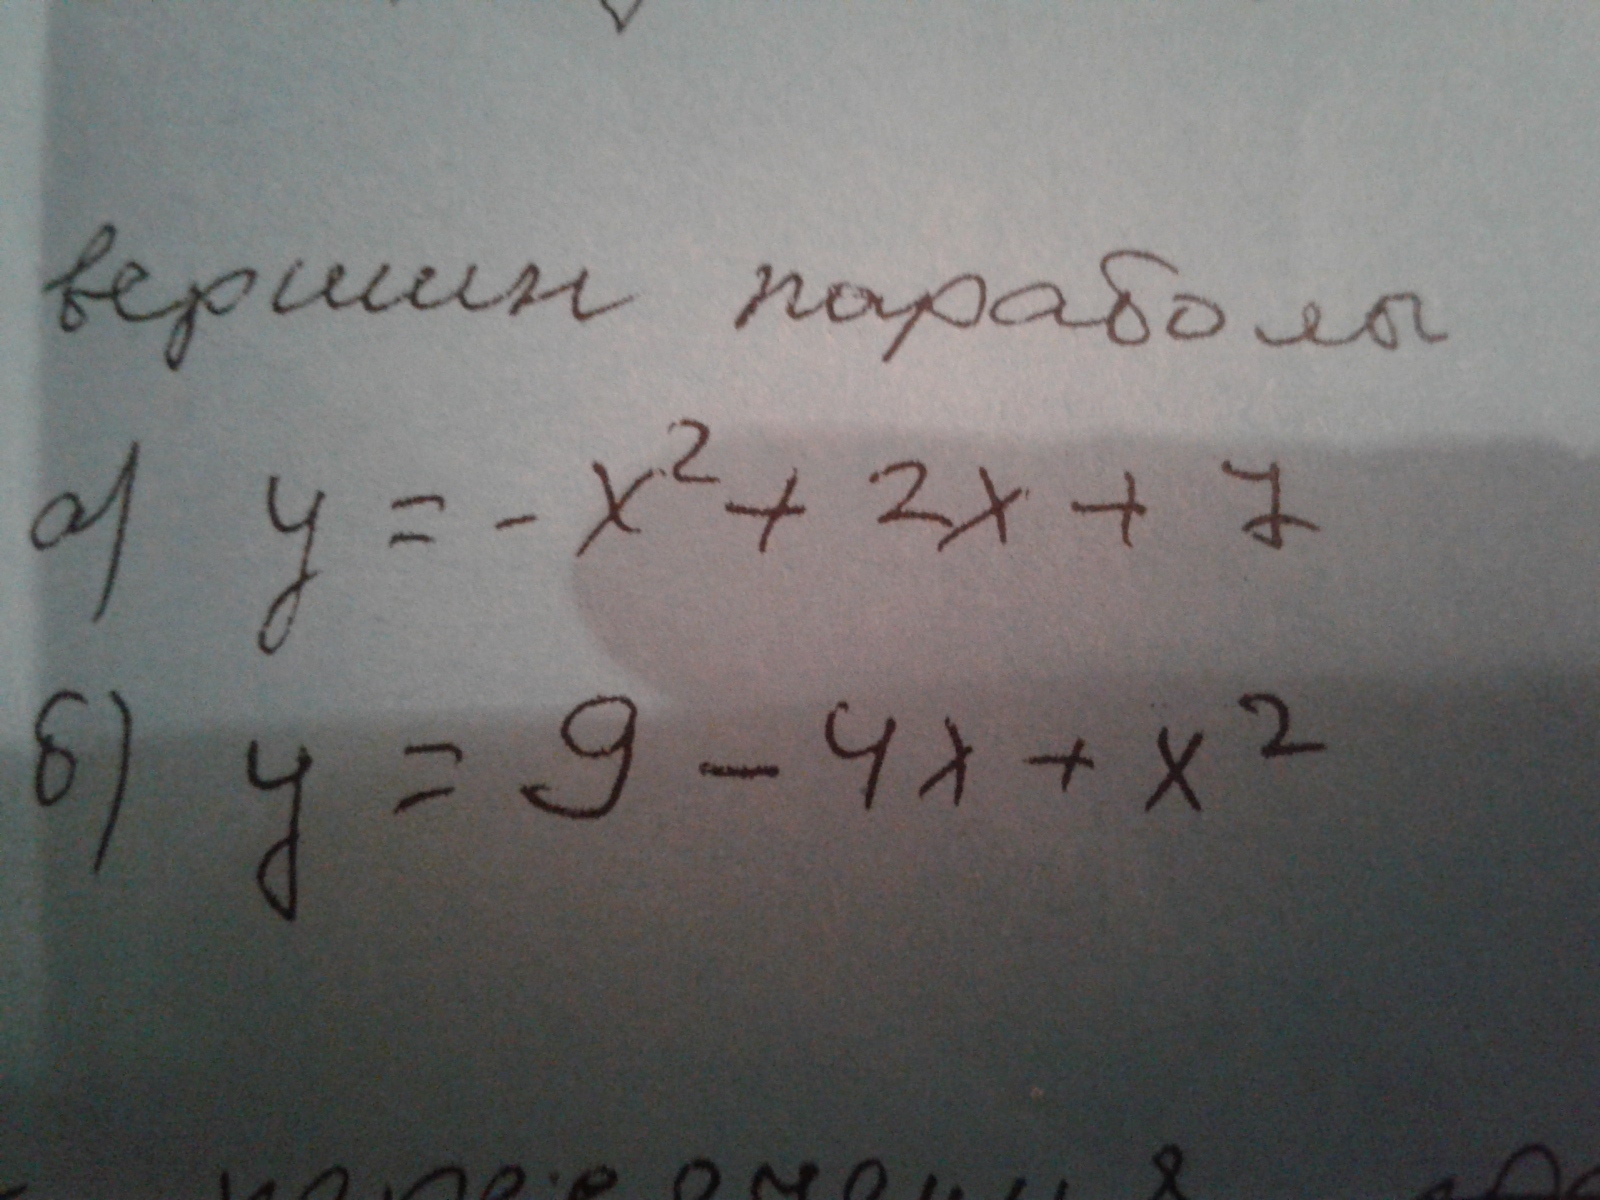 вершин параболы
а) y = -x² + 2x + 7
б) y = 9 - 4x + x²